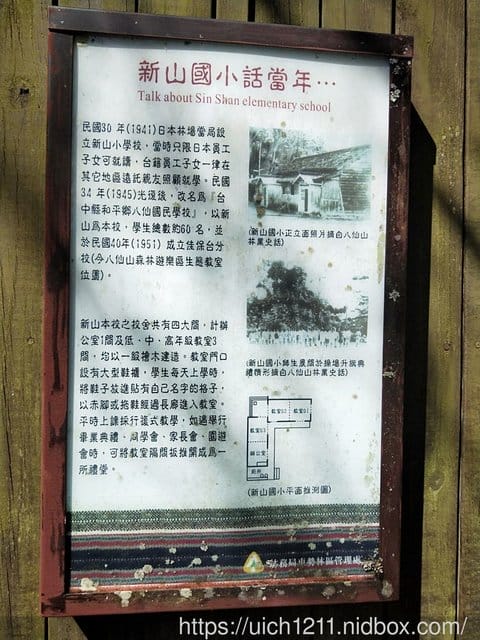 新山國小話當年…
Talk about Sin Shan elementary school
民國30 年(1941)日本林場當局設
立新山小學校，當時只限日本員工
子女可就讀，台籍員工子女一律在
其它地區遠託親友照顧就學。民國
34 年(1945)光復後，改名爲『台
中縣和平鄉八仙國民學校』，以新
山爲本校，學生總數約60 名，並
於民國40年(1951) 成立佳保台分
校(今八仙山森林遊樂區生態教室
位置)。
新山本校之校舍共有四大間，計辦
公室1間及低、中、高年級教室3
間，均以一級檜木建造。教室門口
設有大型鞋櫃，學生每天上學時，
將鞋子放進貼有自己名字的格子，
以赤腳或拖鞋經過長廊進入教室。
平時上課採行複式教學，如遇舉行
畢業典禮、同學會、家長會、園遊
會時，可將教室隔間板推開成爲一
所禮堂。
(新山國小正立面照片摘自八仙山
林業史話)
(新山國小師生晨間於操場升旗典
禮情形摘自八仙山林業史話)
教室03
教室02
教室01
辦公室
廁所
(新山國小平面推測圖)
林務局東勢林區管理處
https://uich1211.nidbox.com/